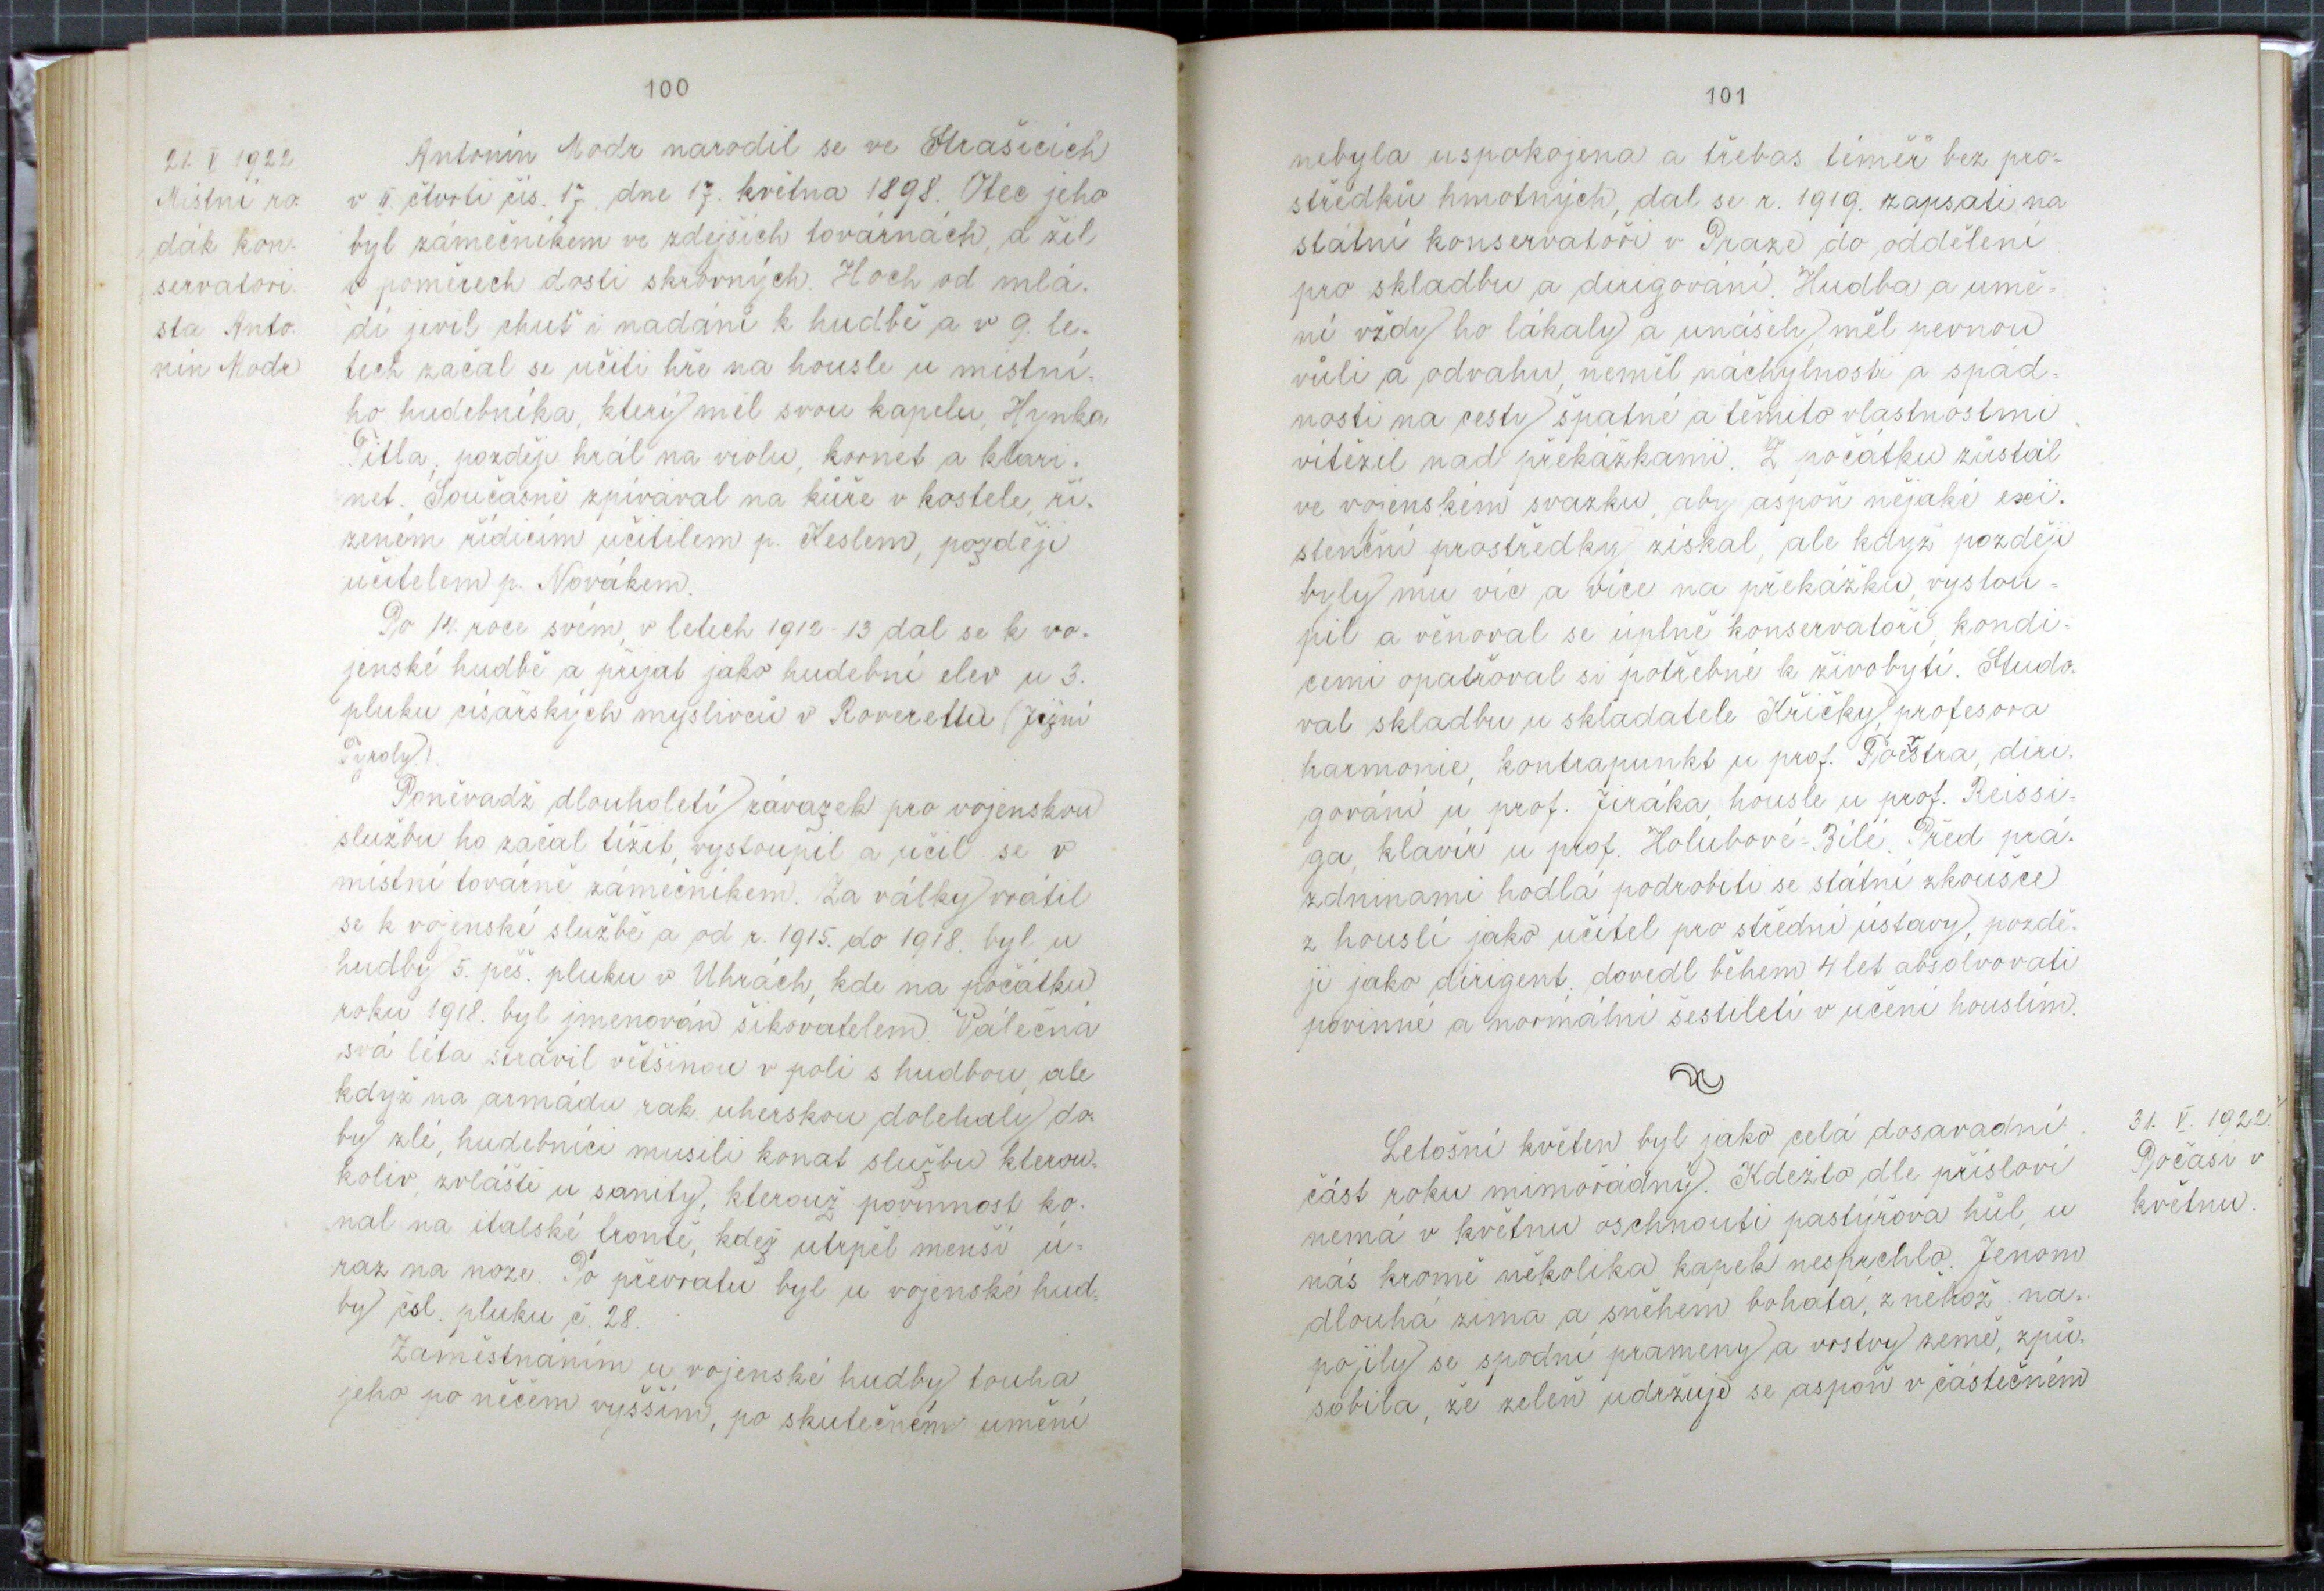 100
21. V 1922
Místní ro-
dák kon-
servatori-
sta Anto-
nín Modr
Antonín Modr narodil se ve Strašicích
v II. čtvrti čís. 17. dne 17. května 1898. Otec jeho
byl zámečníkem ve zdejších továrnách, a žil
v poměrech dosti skrovných. Hoch od mlá-
dí jevil chuť i nadání k hudbě a v 9. le-
tech začal se učiti hře na housle u místní-
ho hudebníka, který měl svou kapelu, Hynka
Titla, později hrál na violu, kornet a klari-
net. Současně zpívával na kůře v kostele, ří-
zeném řídícím učitelem p. Keslem, později
učitelem p. Novákem.
Po 14. roce svém, v letech 1912-13 dal se k vo-
jenské hudbě a přijat jako hudební elev u 3.
pluku císařských myslivců v Roverettu (Jižní
Tyroly).
Poněvadž dlouholetý závazek pro vojenskou
službu ho začal tížit, vystoupil a učil se v
místní továrně zámečníkem. Za války vrátil
se k vojenské službě a od r. 1915. do 1918. byl u
hudby 5. pěš. pluku v Uhrách, kde na počátku
roku 1918. byl jmenován šikovatelem. Válečná
svá léta strávil většinou v poli s hudbou, ale
když na armádu rak. uherskou dolehaly do-
by zlé, hudebníci musili konat službu kterou-
koliv, zvláště u sanity, kterouž povinnost ko-
nal na italské frontě, kdež utrpěl menší ú-
raz na noze. Po převratu byl u vojenské hud-
by čsl. pluku č. 28.
Zaměstnáním u vojenské hudby touha
jeho po něčem vyšším, po skutečném umění
101
nebyla uspokojena a třebas téměř bez pro-
středků hmotných, dal se r. 1919. zapsati na
státní konservatoři v Praze do oddělení
pro skladbu a dirigování. Hudba a umě-
ní vždy ho lákaly a unášely, měl pevnou
vůli a odvahu, neměl náchylnosti a spád-
nosti na cesty špatné a těmito vlastnostmi
vítězil nad překážkami. Z počátku zůstal
ve vojenském svazku, aby aspoň nějaké exi-
stenční prostředky získal, ale když později
byly mu víc a více na překážku, vystou-
pil a věnoval se úplně konservatoři, kondi-
cemi opatřoval si potřebné k živobytí. Studo-
val skladbu u skladatele Křičky, profesora
harmonie, kontrapunkt u prof. Foerstra, diri-
gování u prof. Jiráka, housle u prof. Reissi-
ga, klavír u prof. Holubové-Bílé. Před prá-
zdninami hodlá podrobiti se státní zkoušce
z houslí jako učitel pro střední ústavy, pozdě-
ji jako dirigent, dovedl během 4 let absolvovati
povinné a normální šestiletí v učení houslím.
31. V. 1922.
Počasí v
květnu.
Letošní květen byl jako celá dosavadní
část roku mimořádný. Kdežto dle přísloví
nemá v květnu oschnouti pastýřova hůl, u
nás kromě několika kapek nesprchlo. Jenom
dlouhá zima a sněhem bohatá, z něhož na-
pojily se spodní prameny a vrstvy země, způ-
sobila, že zeleň udržuje se aspoň v částečném